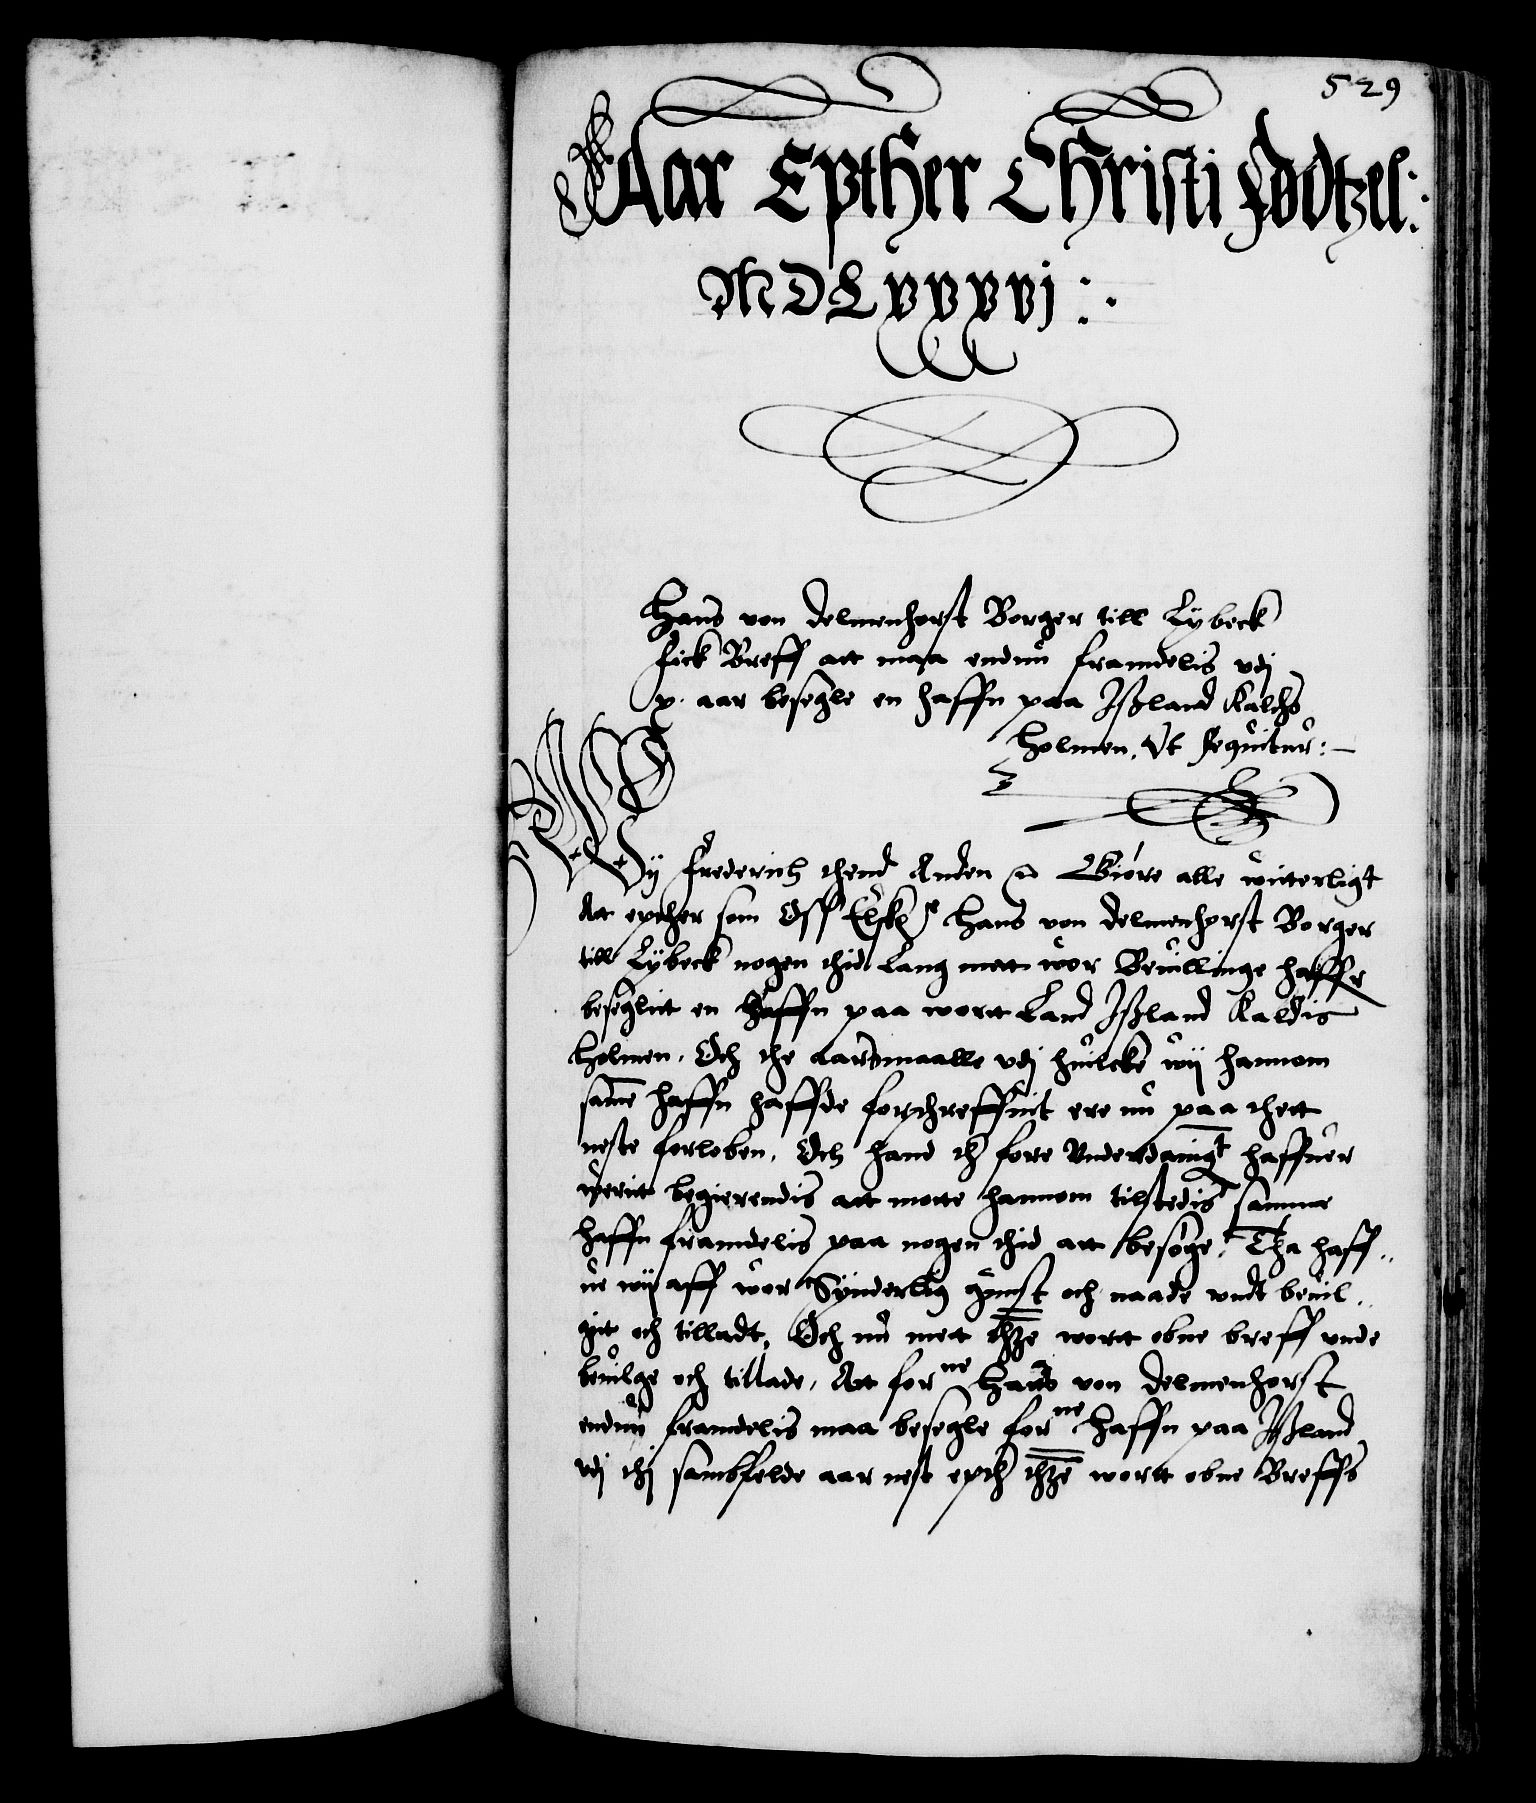 529
Aar Epther Christi Fødtzel:
MDLxxxvj:.
Hans von Delmenhorst Borger till Lybeck
fick Breff att maa endnu framdelis vdj
x. aar besegle en haffn paa Ißland Kalchs
holmen. Vt sequitur:
Wy Frederich thend Anden Giøre alle witterligt
Att epther som Oss Elskᵉ Hans von Delmenhorst Borger
till Lybeck nogen thid Lang mett wor Beuillinge haffr
beseglitt en haffn paa wortt Land Ißland Kaldis
Holmen. Och the aardmaalle vdj huilcke wij hannom
same haffn haffde forschreffuit ere nu paa thett
neste forløben. Och hand th fore Underdanigt haffuer
werit begierendis att motte hannom tilstedis samme
haffn framdelis paa nogen thid att besøge. Tha haff..
ue wij aff wor Synderlig gunst och naade undt beuil..
git och tilladt. Och nu mett thze wortt obne breff unde
beuilge och tillade. Att forne Hans von Delmenhorst
endnu framdelis maa besegle forne haffn paa Ißland
vdj thj sambfelde aar nest epth thze wortt obne Breffs